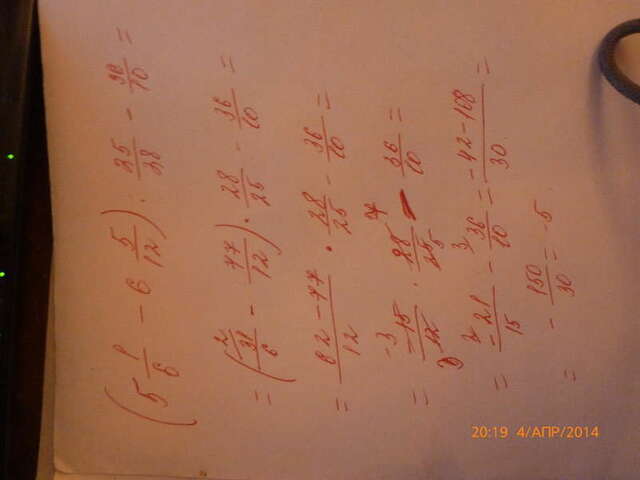 (5 1/6 - 6 5/12) : 25/28 - 36/10 =
= (31/6 - 77/12) · 28/25 - 36/10 =
= 62-77/12 · 28/25 - 36/10 =
= -15/12 · 28/25 - 36/10 =
= -21/15 - 36/10 = -42-108/30 =
= -150/30 = -5
20:19 4/АПР/2014